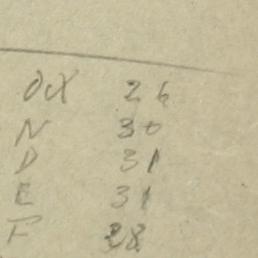 Oct 26
N 30
D 31
E 31
F 28